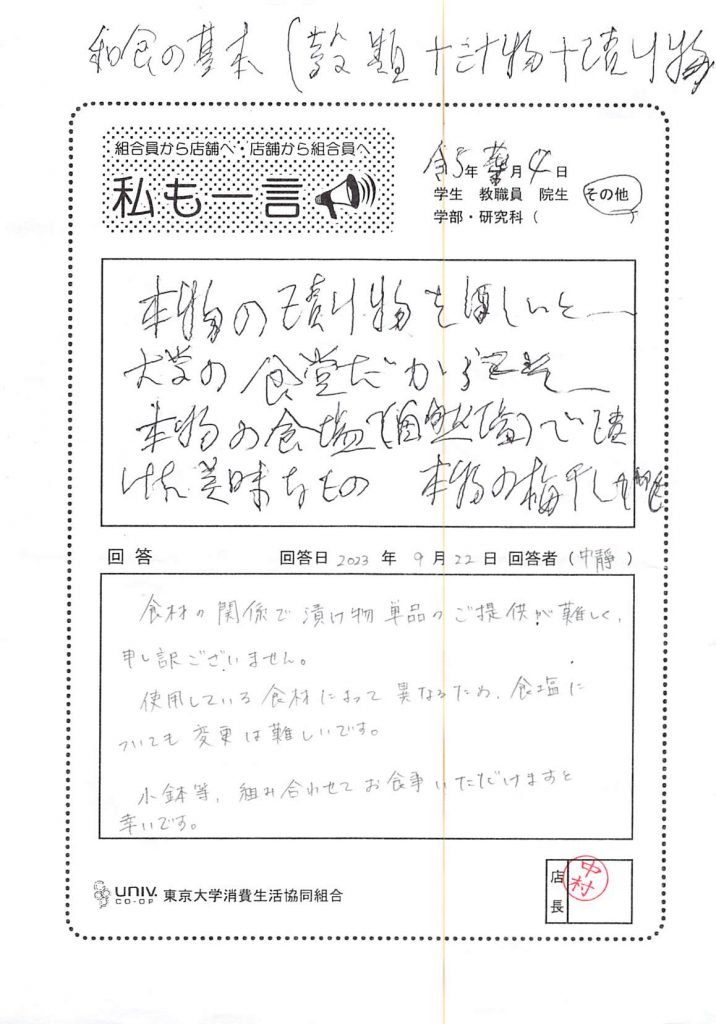 和食の基本(穀類+汁物+漬け物
組合員から店舗へ・店舗から組合員へ
私も一言
5年 月4日
学生 教職員 院生 その他
学部・研究科( )
本物の漬け物を ほしいと
大学の食堂だから
本物の食塩(自然塩)で漬
けた美味なもの 本物の梅干し
回答 回答日 2023 年 9 月 22 日 回答者(中静)
食材の関係で漬け物単品のご提供が難しく、
申し訳ございません。
使用している食材によって異なるため、食塩に
ついても変更は難しいです。
小鉢等、組み合わせてお食事いただけますと
幸いです。
UNIV.
CO-OP 東京大学消費生活協同組合
店長
中村